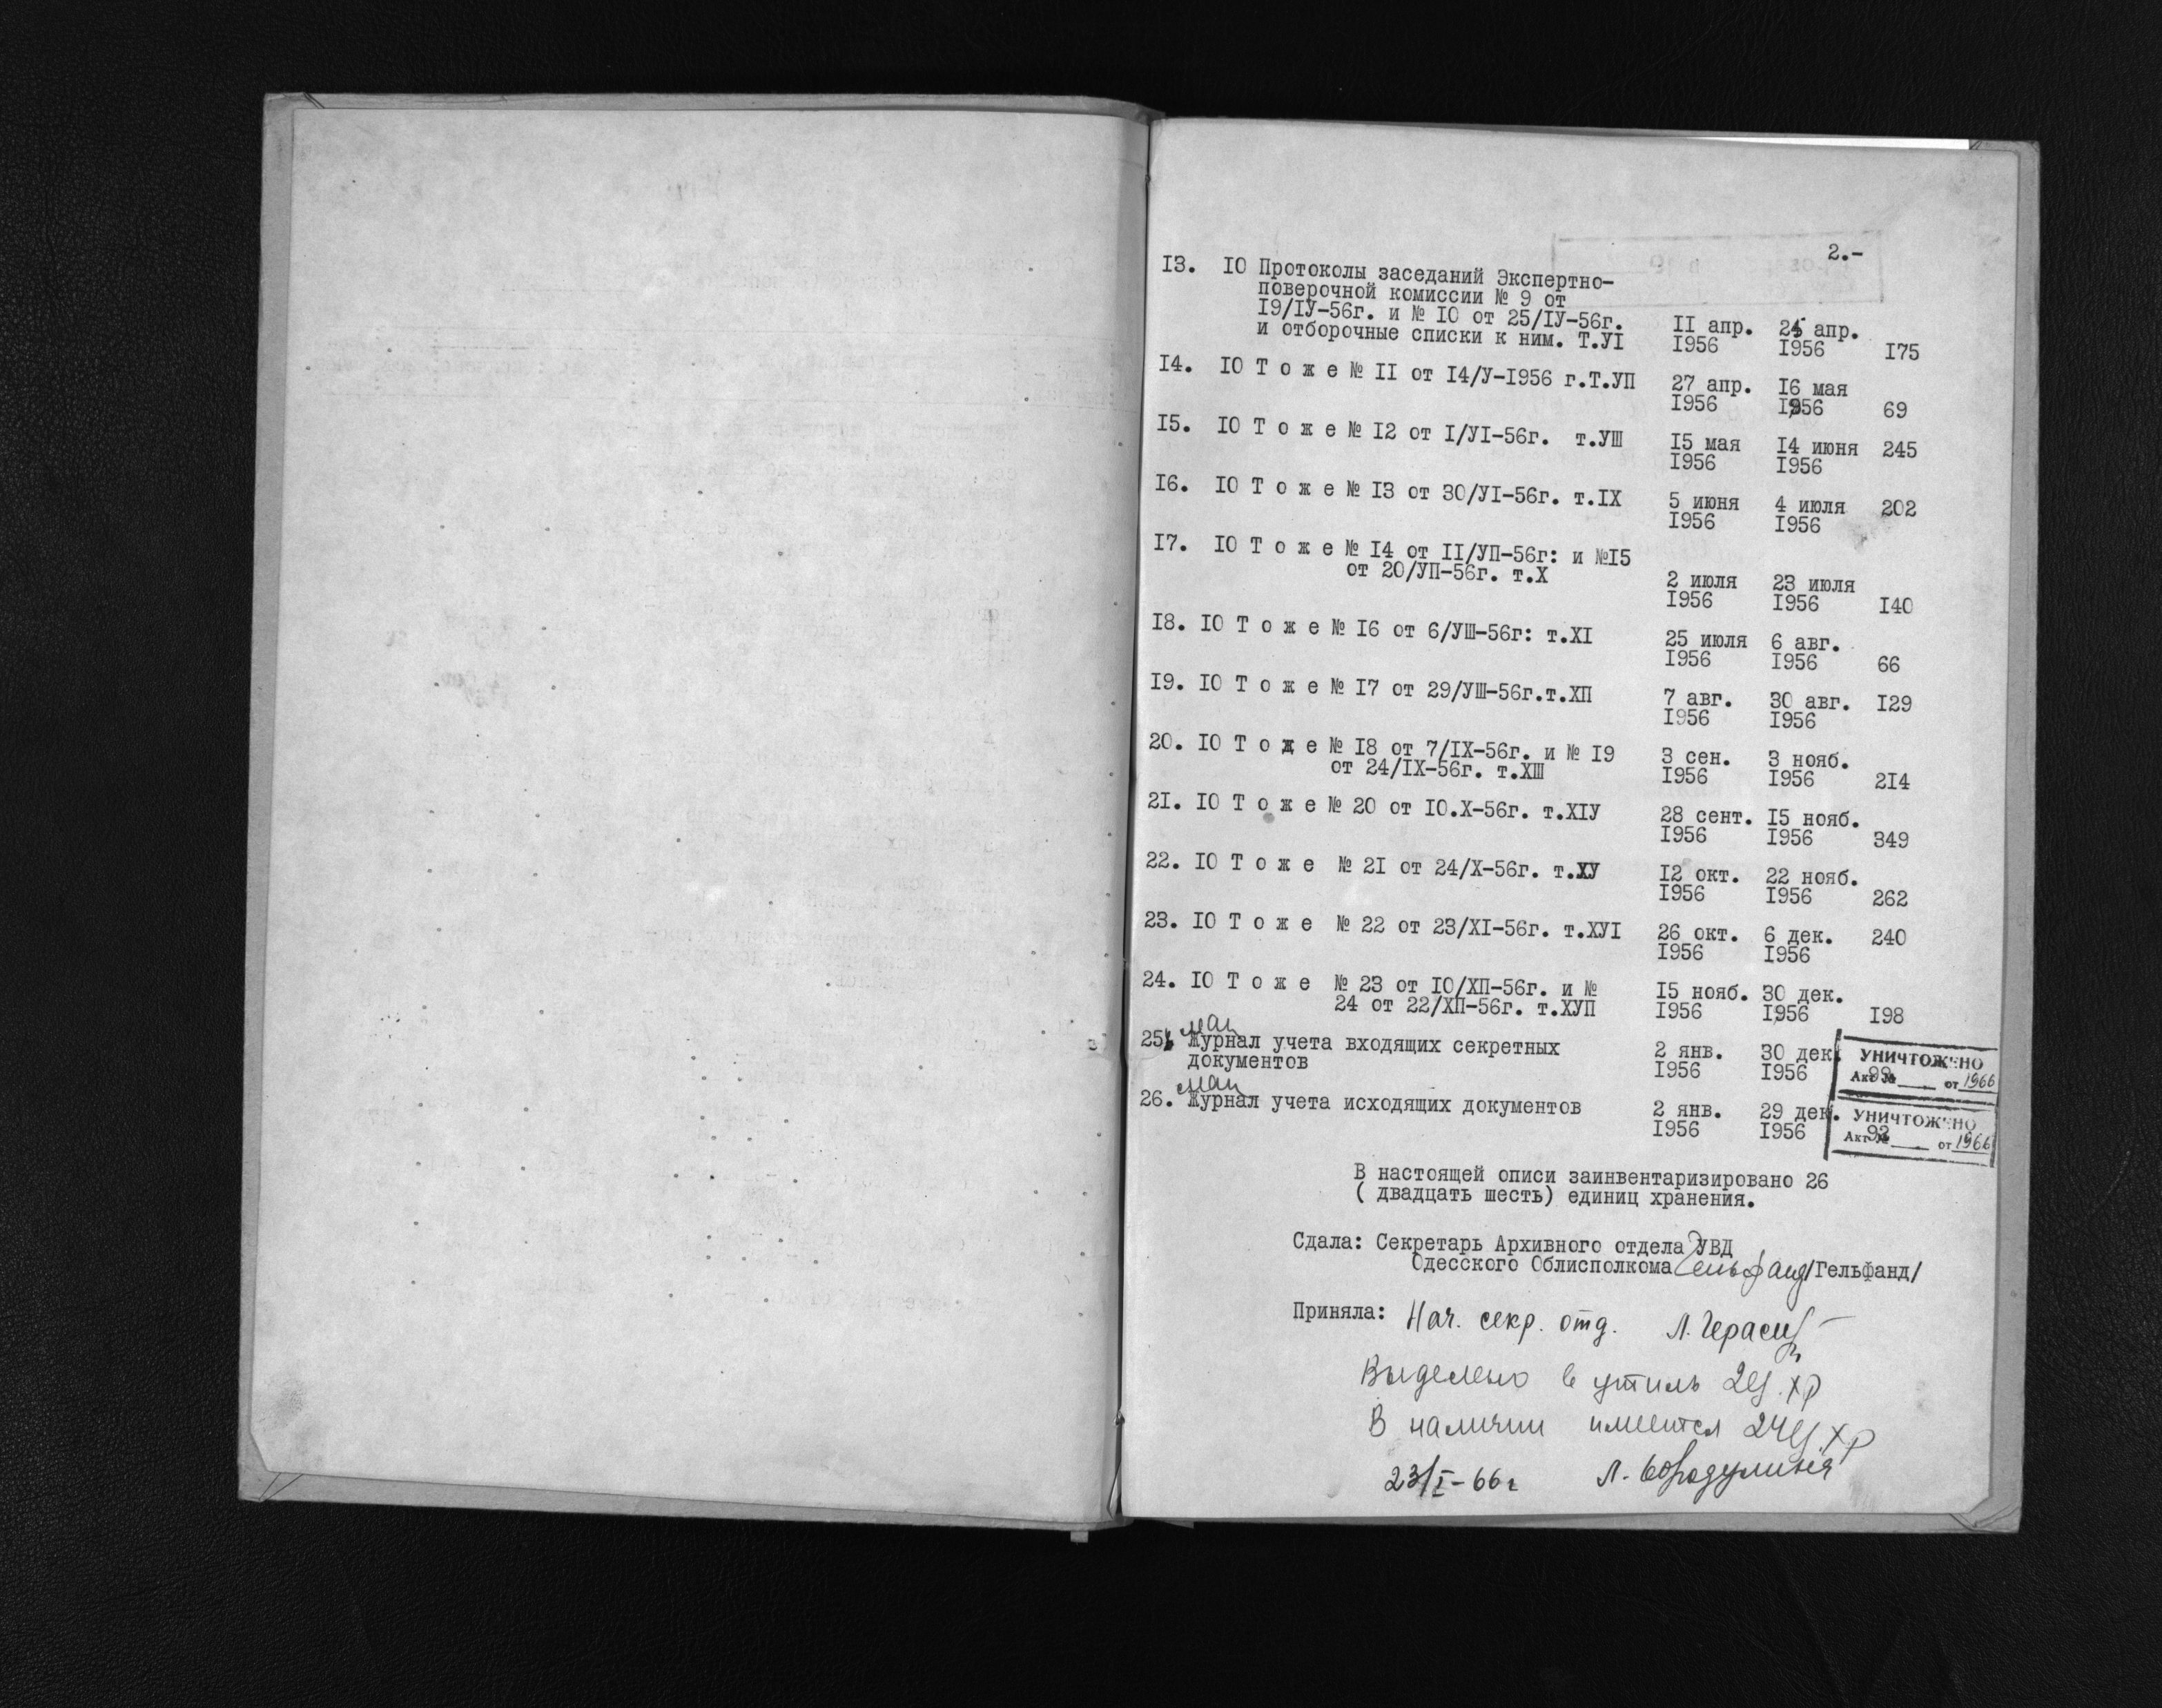 2.-
I3. I0 Протоколы заседаний Экспертно-
поверочной комиссии № 9 от
I9/IУ-56г. и № I0 от 25/IУ-56г.
и отборочные списки к ним. Т.УI II апр. 25 апр.
I956 I956 I75
I4. I0 Т о ж е № II от I4/У-I956 г.Т.УП 27 апр. I6 мая
I956 I956 69
I5. I0 Т о ж е № I2 от I/УI-56г. т.УШ I5 мая I4 июня 245
I956 I956
I6. I0 Т о ж е № I3 от 30/УI-56г. т.IX 5 июня 4 июля 202
I956 I956
I7. I0 Т о ж е № I4 от II/УП-56г: и №I5
от 20/УП-56г. т.Х 2 июля 23 июля
I956 I956 I40
I8. I0 Т о ж е № I6 от 6/УШ-56г: т.XI 25 июля 6 авг.
I956 I956 66
I9. I0 Т о ж е № I7 от 29/УШ-56г.т.ХП 7 авг. 30 авг. I29
I956 I956
20. I0 Т о ж е № I8 от 7/IX-56г. и № I9 3 сен. 3 нояб.
от 24/IX-56г. т.ХШ I956 I956 2I4
2I. I0 Т о ж е № 20 от I0.Х-56г. т.ХIУ 28 сент. I5 нояб.
I956 I956 349
22. I0 Т о ж е № 2I от 24/Х-56г. т.ХУ I2 окт. 22 нояб.
I956 I956 262
23. I0 Т о ж е № 22 от 23/XI-56г. т.ХУI 26 окт. 6 дек. 240
I956 I956
24. I0 Т о ж е № 23 от I0/ХП-56г. и № I5 нояб. 30 дек.
24 от 22/ХП-56г. т.ХУП I956 I956 I98
25. Журнал учета входящих секретных 2 янв. 30 дек.
документов I956 I956
УНИЧТОЖЕНО
Акт № от 1966
26. Журнал учета исходящих документов 2 янв. 29 дек.
I956 I956
УНИЧТОЖЕНО
Акт № от 1966
В настоящей описи заинвентаризировано 26
( двадцать шесть) единиц хранения.
Сдала: Секретарь Архивного отдела УВД
Одесского Облисполкома Гельфанд /Гельфанд/
Приняла: Нач. секр. отд.
Выделено в утиль 2 ед. хр
В наличии имеется 24 ед. хр
23/I-66г Л. Бородулина